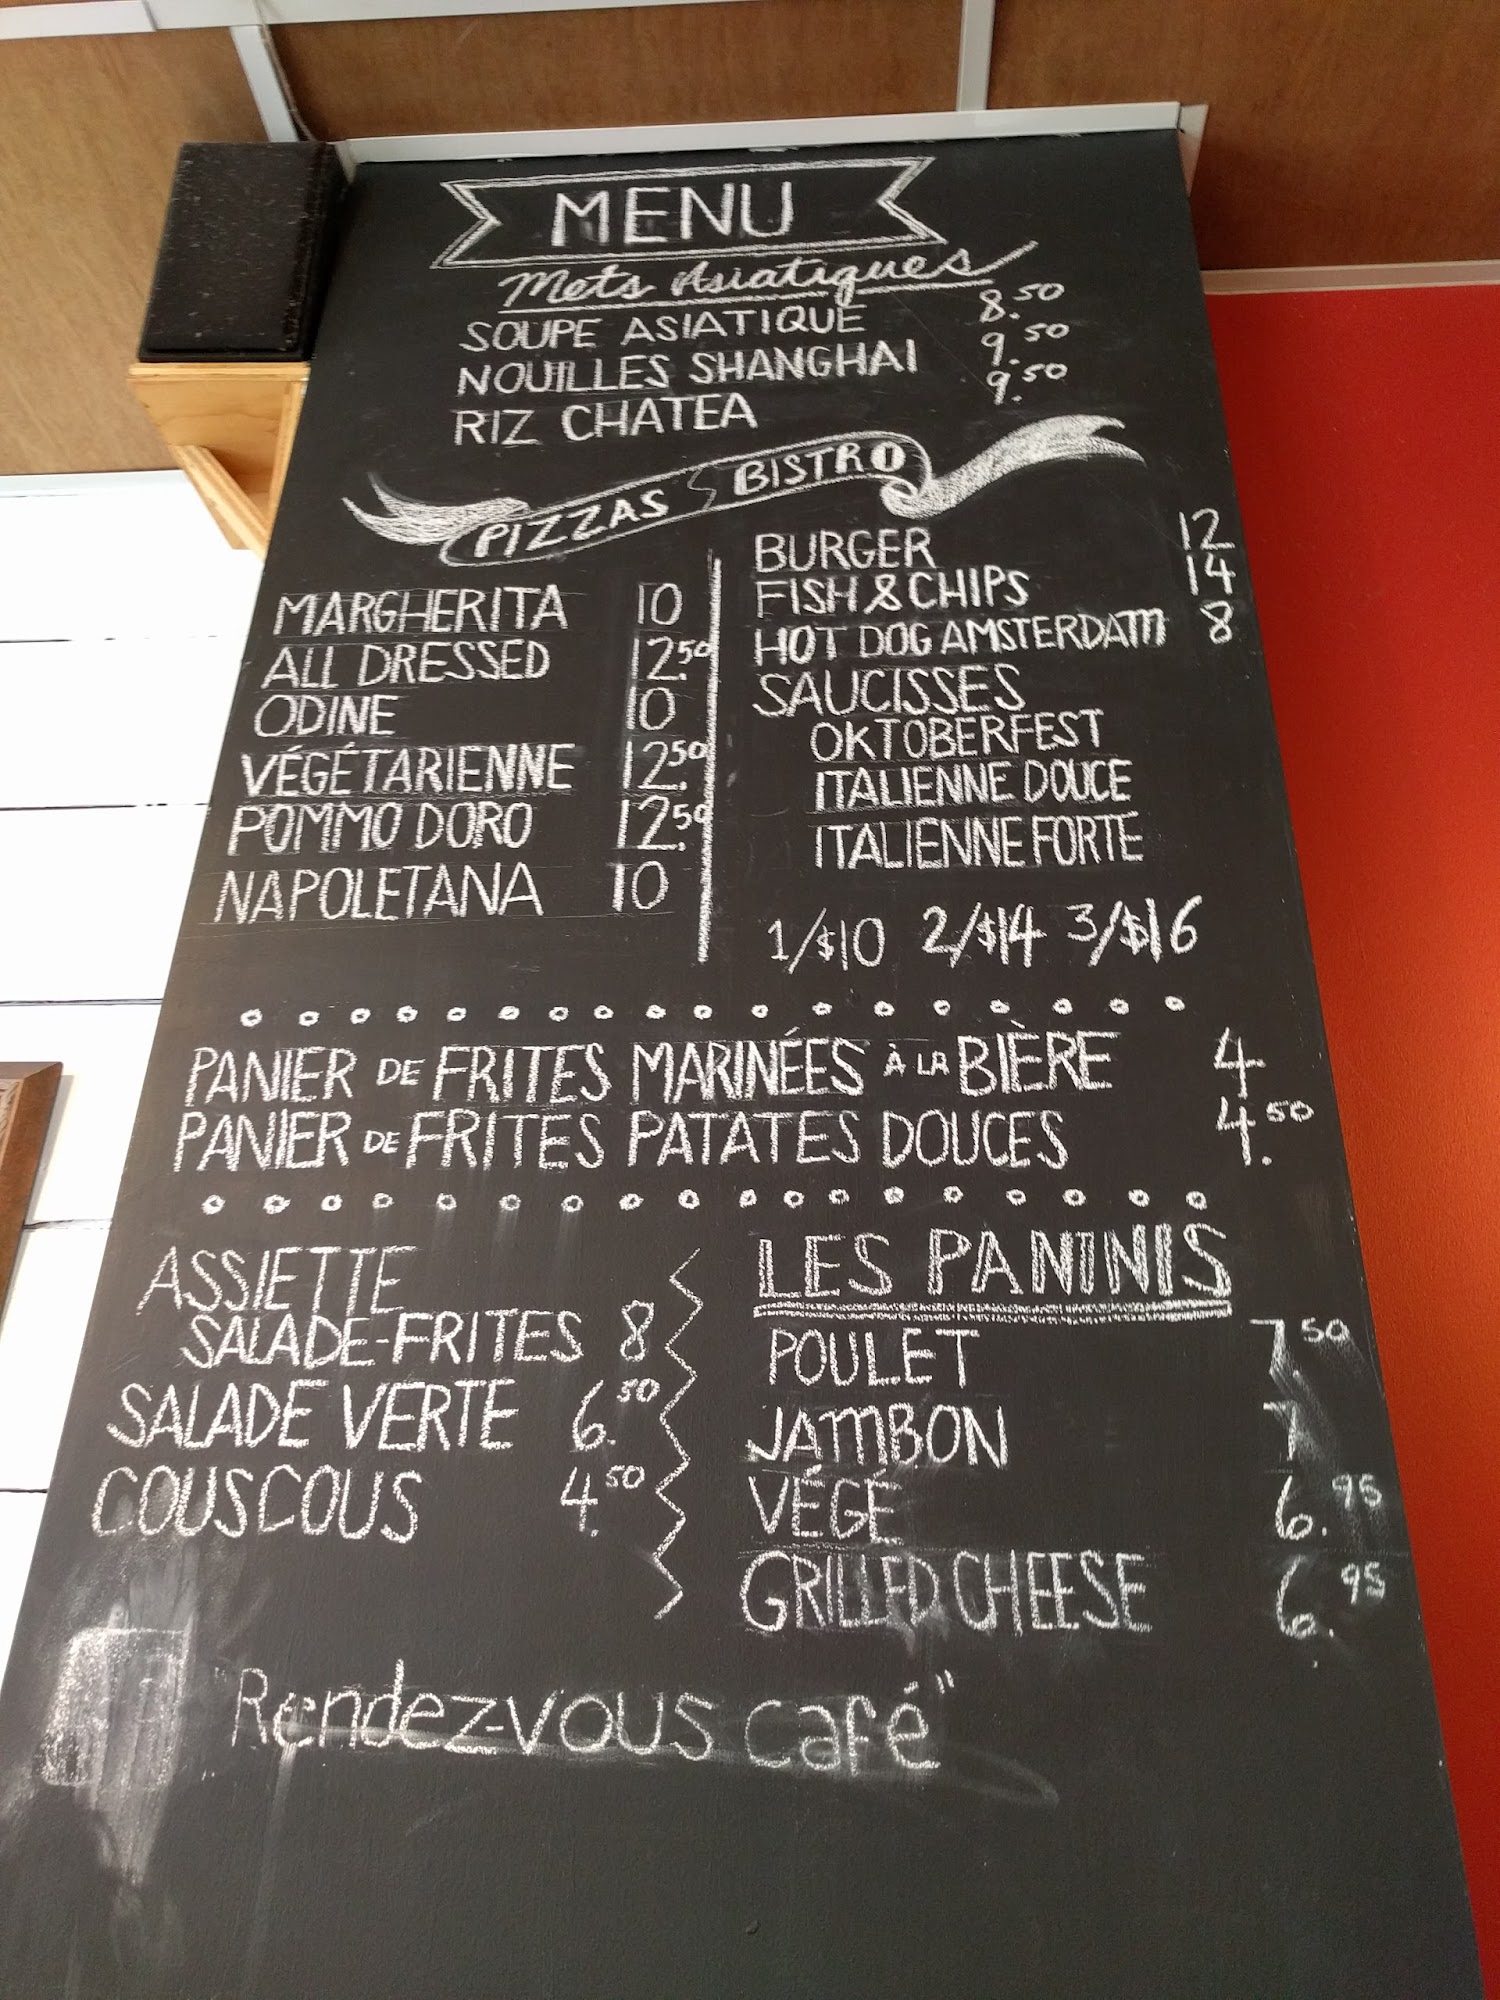 MENU
Mets Asiatiques
SOUPE ASIATIQUE 8.50
NOUILLES SHANGHAI 9.50
RIZ CHATEA 9.50
PIZZAS BISTRO
MARGHERITA 10
ALL DRESSED 12.50
ODINE 10
VÉGÉTARIENNE 12.50
POMMO DORO 12.50
NAPOLETANA 10
BURGER 12
FISH & CHIPS 14
HOT DOG AMSTERDAM 8
SAUCISSES
OKTOBERFEST
ITALIENNE DOUCE
ITALIENNE FORTE
1/$10 2/$14 3/$16
PANIER DE FRITES MARINÉES À LA BIÈRE 4
PANIER DE FRITES PATATES DOUCES 4.50
ASSIETTE
SALADE-FRITES 8
SALADE VERTE 6.50
COUSCOUS 4.50
LES PANINIS
POULET 7.50
JAMBON 7
VÉGÉ 6.95
GRILLED CHEESE 6.95
Rendez-vous café"